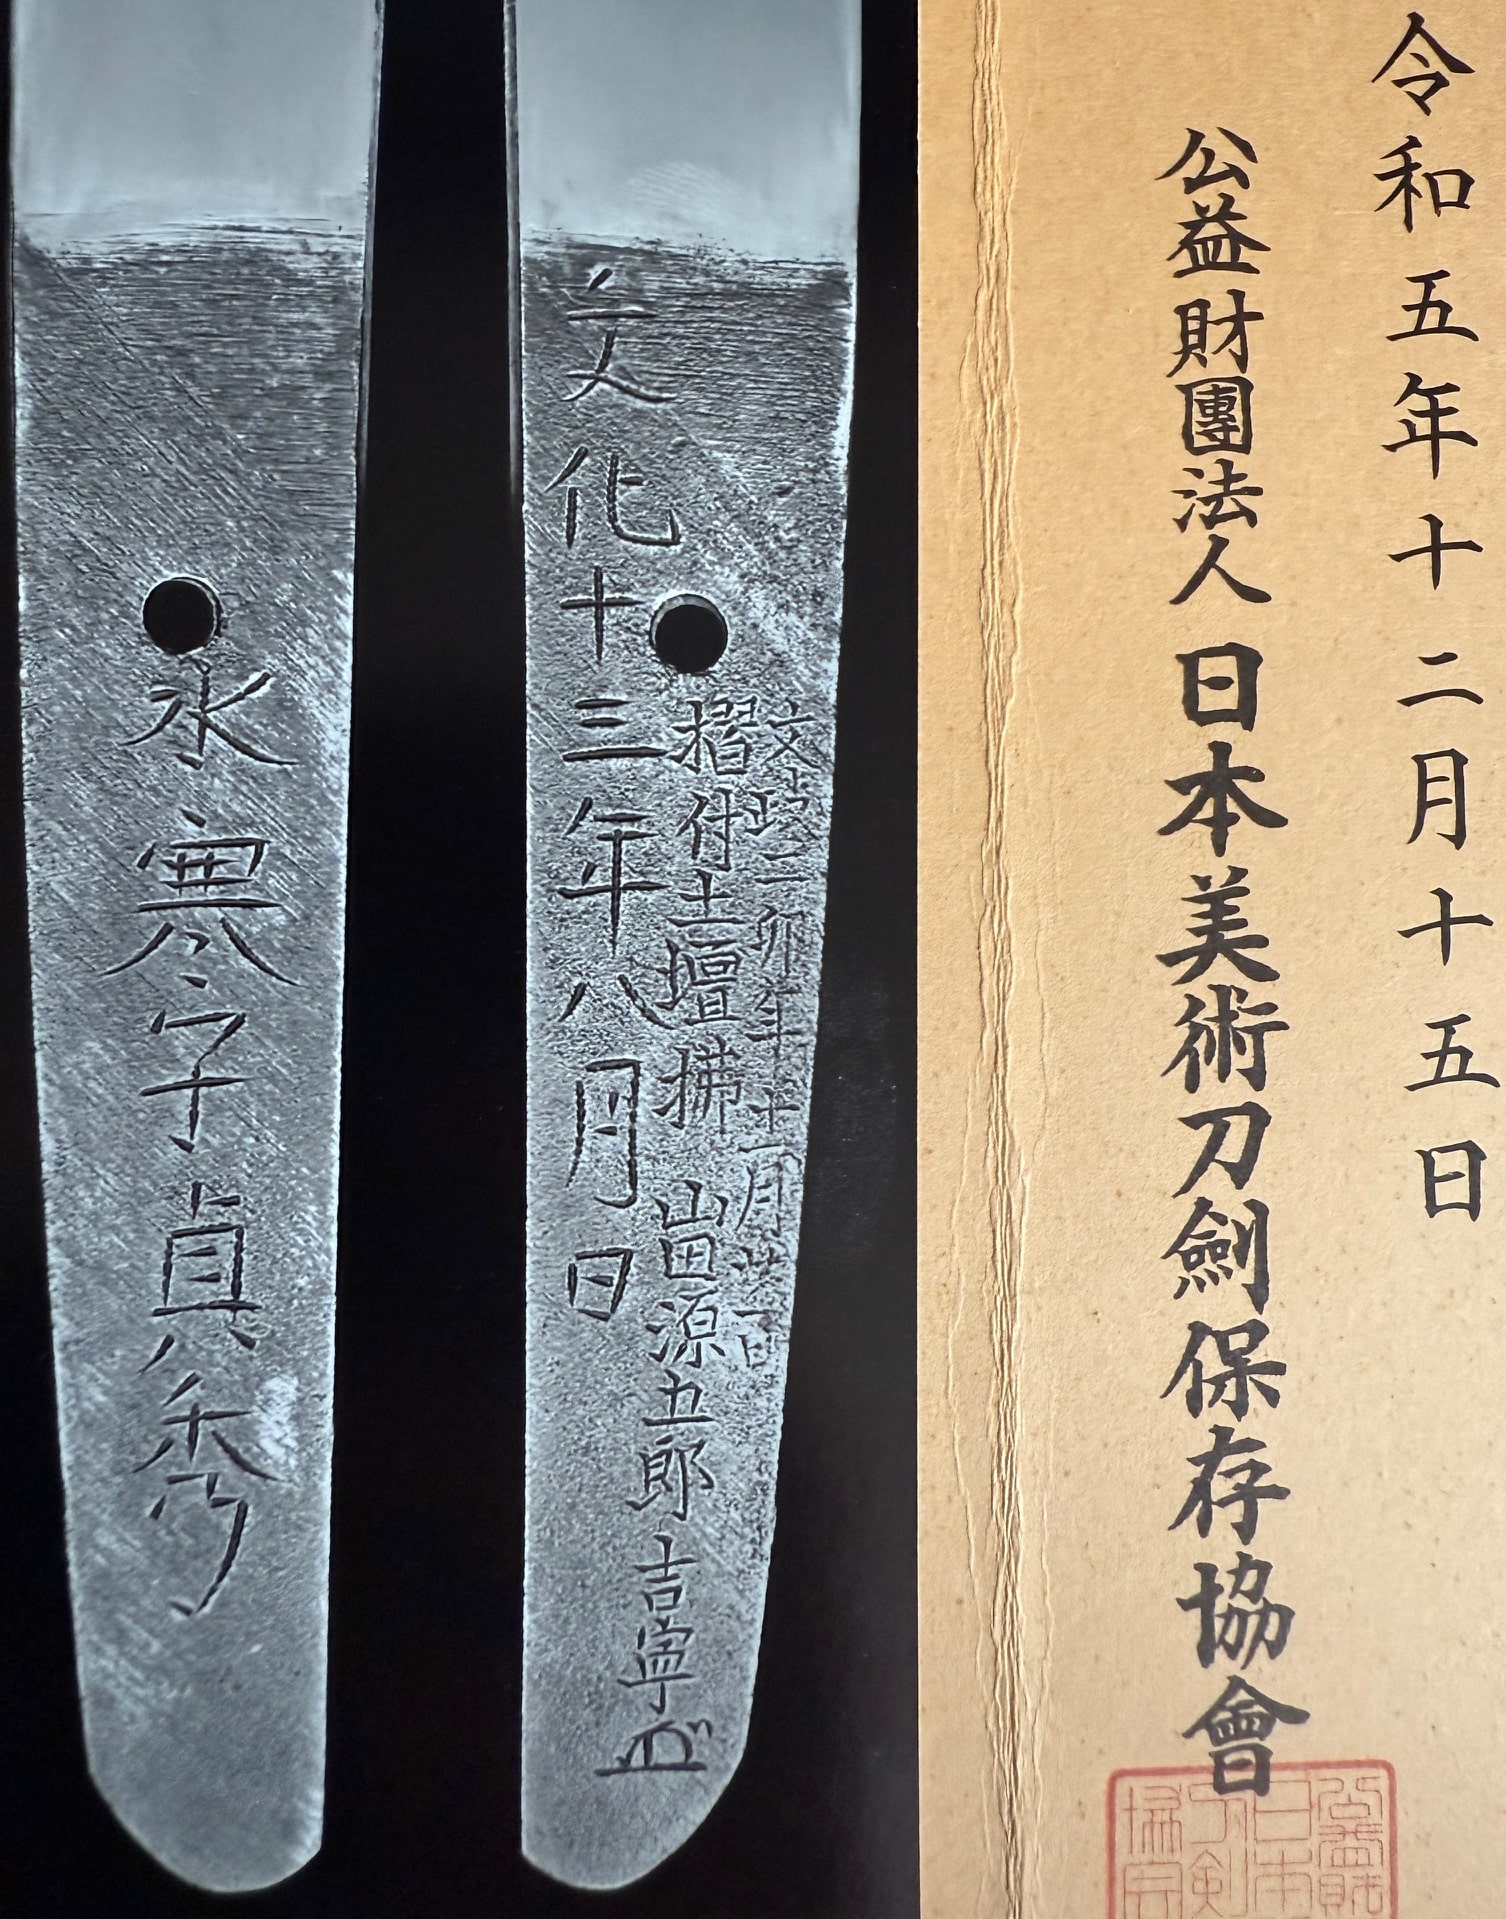 令和五年十二月十五日
公益財團法人日本美術刀劍保存協會
文政二卯年十一月
摺付土壇拂 山田源五郎吉寧
文化十三年八月日
水寒子貞秀